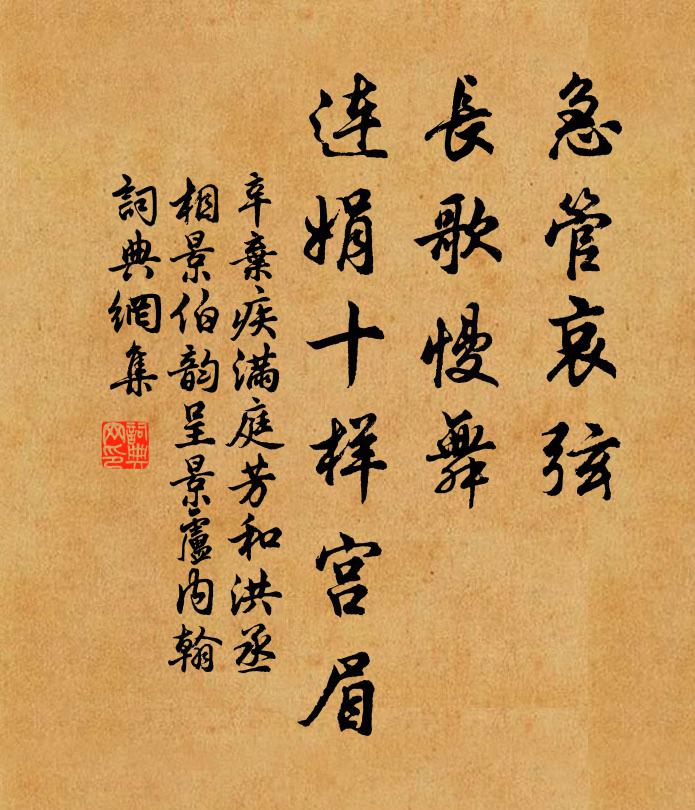 急管哀弦
長歌慢舞
連娟十样宫眉
辛棄疾满庭芳和洪丞
相景伯韵呈景盧内翰
詞典網集
詞典
网印